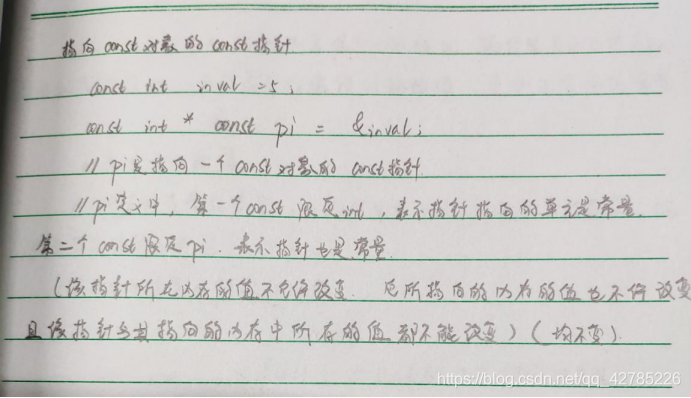 指向const对象的const指针
const int inval = 5;
const int * const pi = &inval;
// pi是指向一个const对象的const指针
// pi定义中, 第一个const限定int, 表示指针指向的单元是常量.
第二个const限定pi. 表示指针也是常量.
(该指针所在内存的值不允许改变. 它所指向的内存的值也不许改变
且该指针与其指向的内存中所存的值都不能改变) (均不变).
https://blog.csdn.net/qq_42785226